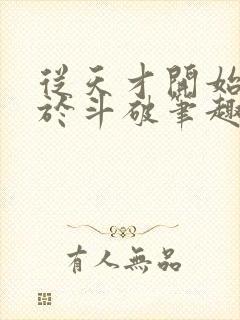 從天才開始
於斗破筆趣
有人無品